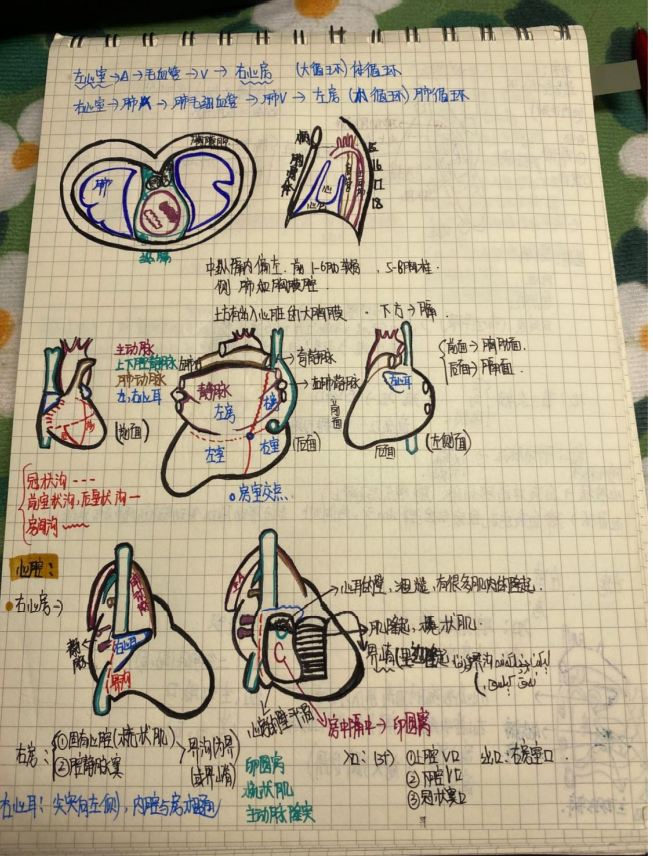 左心室→A→毛血管→V→右心房 (大循环)体循环
右心室→肺A→肺毛细血管→肺V→左房(小循环)肺循环
肺
纵隔
心
5
6
7
8
中纵隔内偏左.前1-6肋软骨,5-8胸椎.
侧 肺 胸膜腔
上方有出入心脏的大 · 下方→膈
主动脉
上下腔静脉
肺动脉
左,右心耳
(前面)
奇静脉
左肺静脉
静脉
左房
右房
左室
右室
(后面)
房室交点
左心耳
后面
(左侧面)
前面→胸肋面.
后面→膈面
冠状沟---
前室状沟,后室状沟—
房间沟
心腔:
右心房→
右心耳
界沟
心耳内壁,粗糙,有很多肌肉的隆起.
肌隆起,梳状肌.
界嵴
界沟
心房内壁平滑
房中隔中→卵圆窝
右房:①固有心腔(梳状肌)
②腔静脉窦
界沟为界
(或界嵴)
卵圆窝
梳状肌
主动脉隆突
入口:(3个)①上腔V口
②下腔V口
③冠状窦口
出口:右房室口.
右心耳:尖突向左侧,内腔与房相通